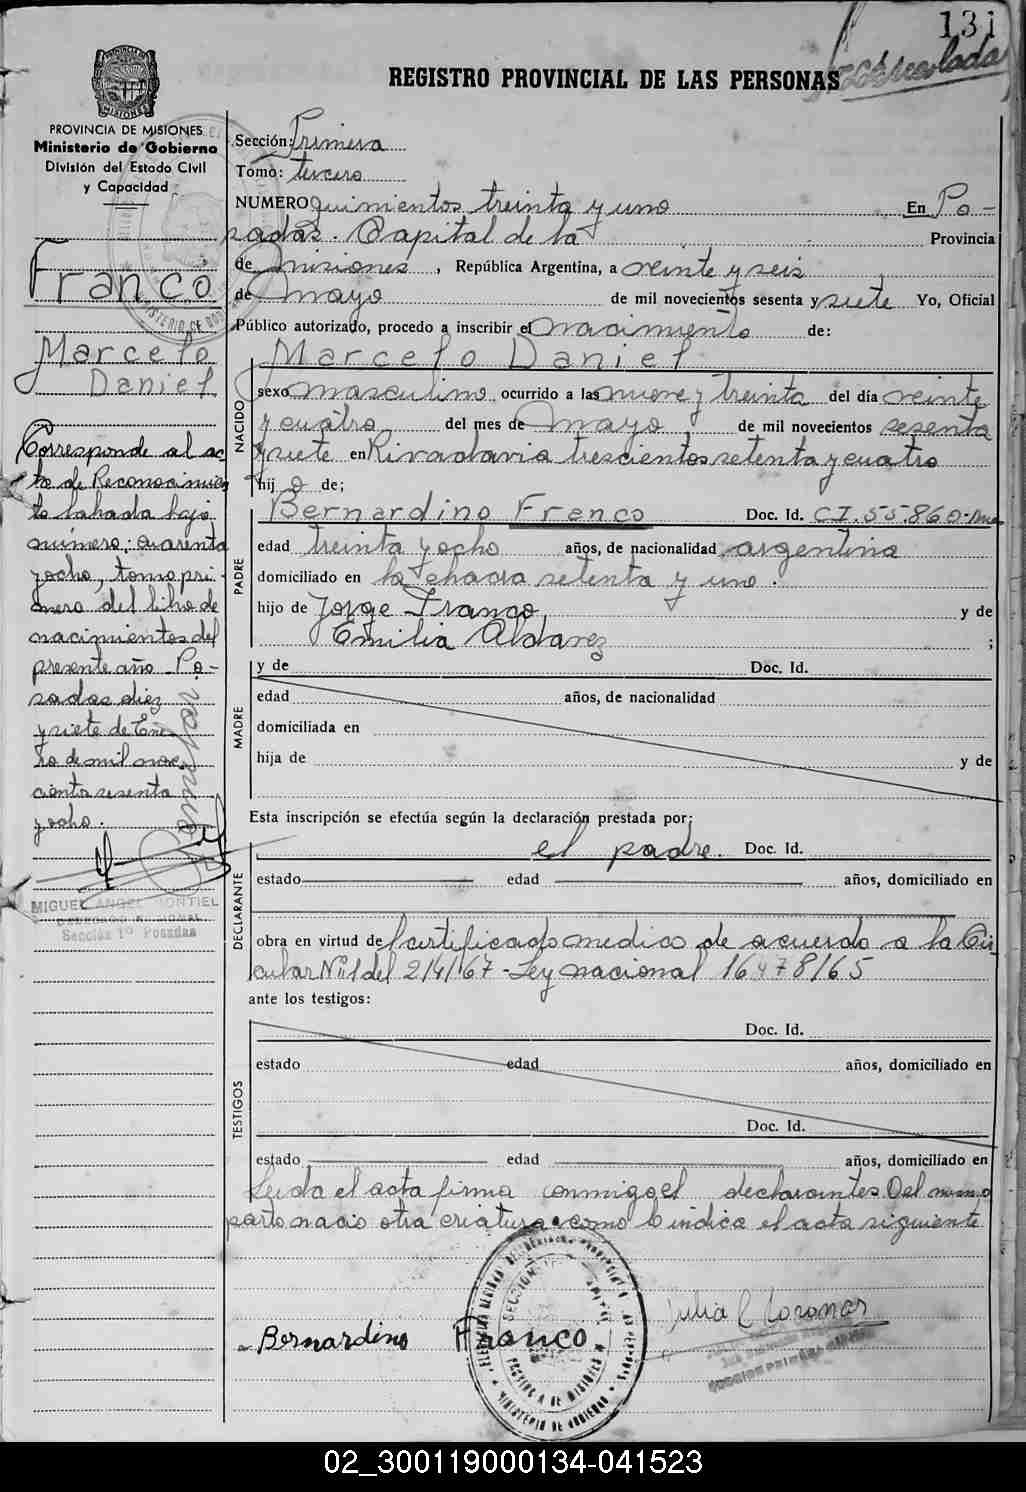 131
REGISTRO PROVINCIAL DE LAS PERSONAS
PROVINCIA DE MISIONES
Ministerio de Gobierno
División del Estado Civil
y Capacidad
Franco
Marcelo
Daniel
Corresponde al ac-
ta de Reconocimien
to labrada bajo
número: cuarenta
y ocho, tomo pri
mero del libro de
nacimientos del
presente año - Po-
sadas diez
y siete de Ene-
ro de mil nove
cientos sesenta
y ocho.
MIGUEL ANGEL MONTIEL
Sección 1º Posadas
Sección: Primera
Tomo: tercero
NUMERO quinientos treinta y uno En Po-
sadas. Capital de la Provincia
de Misiones, República Argentina, a veinte y seis
de Mayo de mil novecientos sesenta y siete Yo, Oficial
Público autorizado, procedo a inscribir el nacimiento de:
Marcelo Daniel
NACIDO
sexo masculino ocurrido a las nueve y treinta del día veinte
y cuatro del mes de Mayo de mil novecientos sesenta
y siete en Rivadavia trescientos setenta y cuatro
hij o de;
PADRE
Bernardino Franco Doc. Id. CI.55.860-
edad treinta y ocho años, de nacionalidad argentina
domiciliado en la chacra setenta y uno.
hijo de Jorge Franco y de
Emilia Aldarez ;
MADRE
y de Doc. Id.
edad años, de nacionalidad
domiciliada en
hija de y de
Esta inscripción se efectúa según la declaración prestada por:
DECLARANTE
el padre. Doc. Id.
estado edad años, domiciliado en
obra en virtud de certificado medico de acuerdo a la Cir-
cular Nº 1 del 2/4/67 - Ley nacional 16478/65
ante los testigos:
TESTIGOS
Doc. Id.
estado edad años, domiciliado en
Doc. Id.
estado edad años, domiciliado en
Leida el acta firma conmigo el declarantes Del mismo
parto nacio otra criatura como lo indica el acta siguiente
Bernardino Franco
02_300119000134-041523